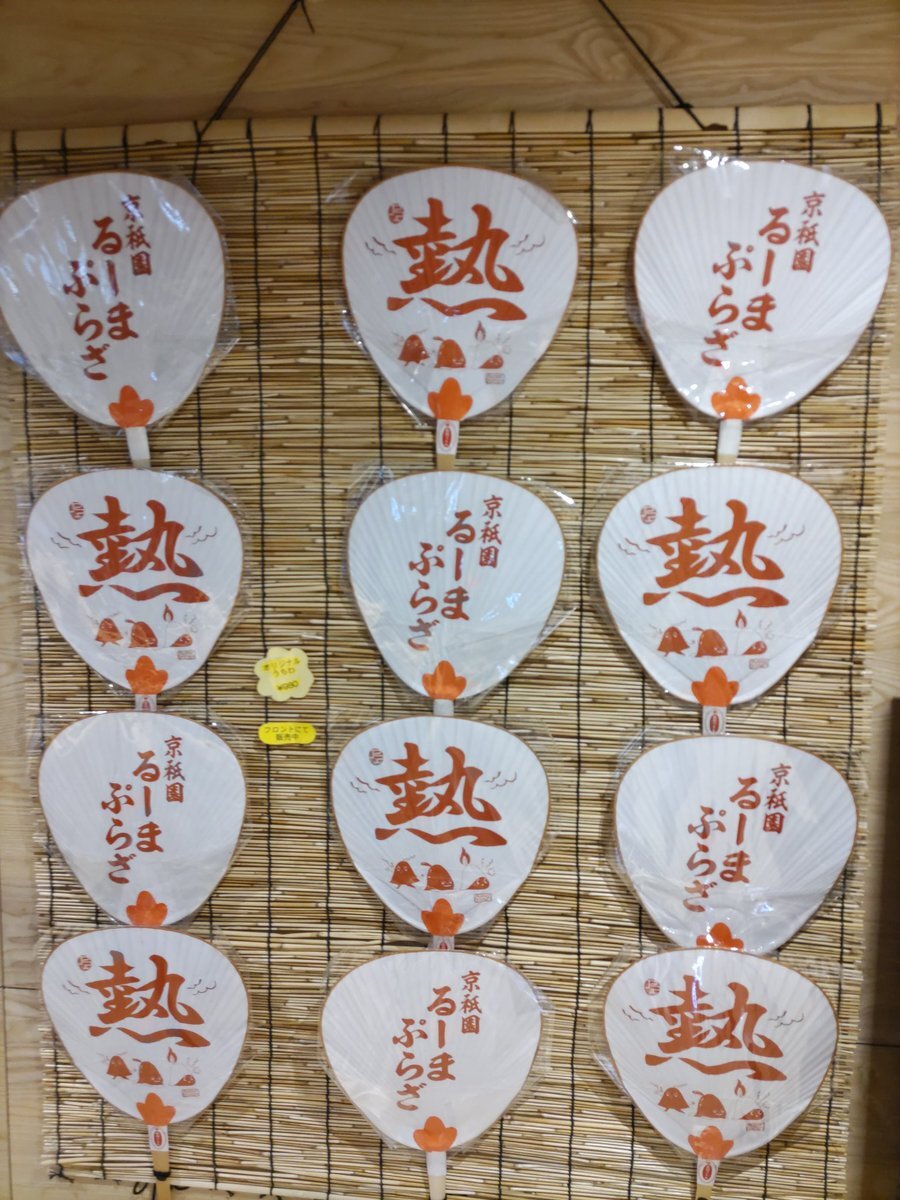 京祇園
るーま
ぷらざ
熱
京祇園
るーま
ぷらざ
熱
京祇園
るーま
ぷらざ
熱
オリジナル
うちわ
¥980
フロントにて
販売中
京祇園
るーま
ぷらざ
熱
京祇園
るーま
ぷらざ
熱
京祇園
るーま
ぷらざ
熱